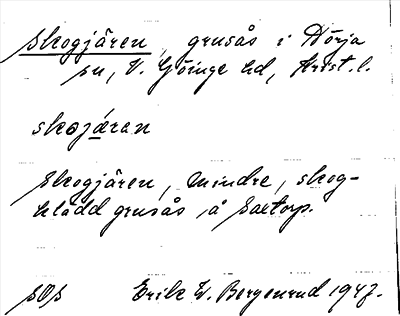 Skogjären, grusås i Dörja
sn, V. Göinge hd, Krist. l.
skojǽran
Skogjären, mindre, skog-
klädd grusås, å Saxtorp.
SOS Erik W. Bergenrud 1947.